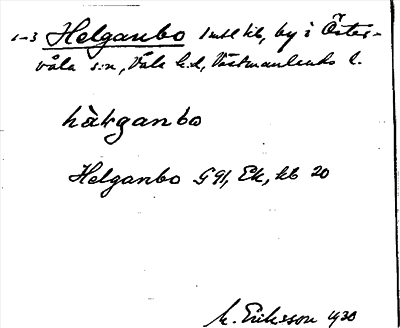 1-3 Helganbo 1 mtl kb, by i Öster-
våla s:n, Våla h.d, Västmanlands l.
hàlganbo
Helganbo G 91, Ek, kb 20
M. Eriksson 1930